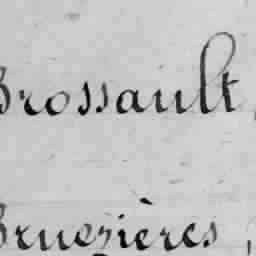 Brossault,
Bruezières,